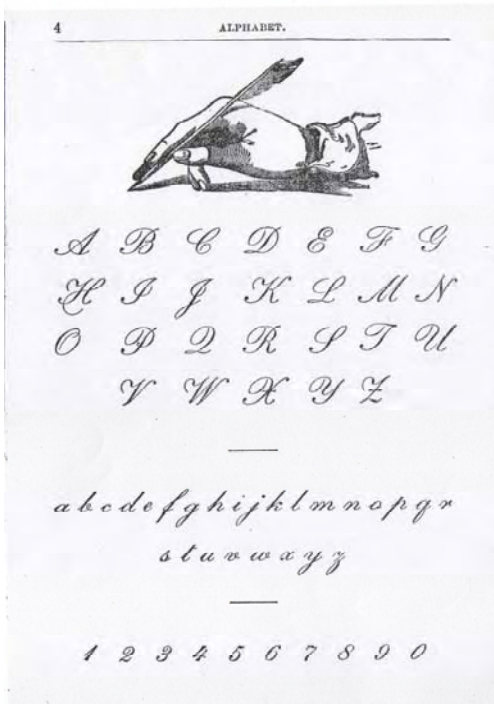 4 ALPHABET.
A B C D E F G
H I J K L M N
O P Q R S T U
V W X Y Z
a b c d e f g h i j k l m n o p q r
s t u v w x y z
1 2 3 4 5 6 7 8 9 0